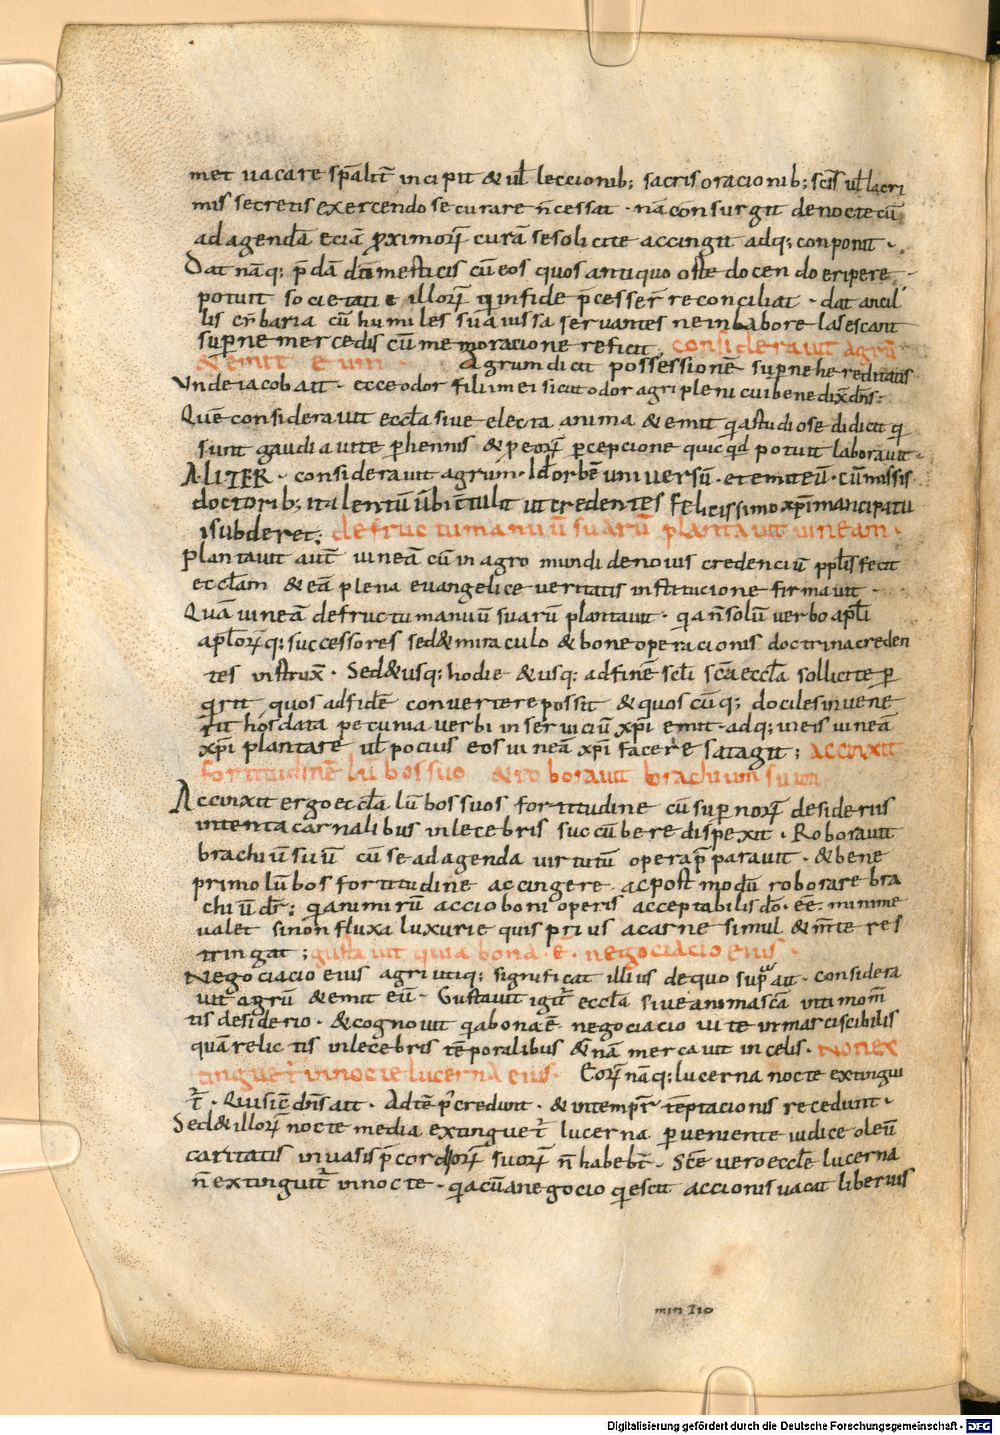 met uacare sp̄alit̄ incipit & ul̄ leccionib; sacris oracionib; sc̄is ul̄ lacri
mis secretis exercendo se curare n̄cessat · nā consurgit de nocte cū
ad agenda eciā ꝓximoꝝ curā se solicite accingit adq; conponit ·
Dat nāq; p̄dā domesticis cū eos quos antiquo oste docendo eripere
potuit societati illoꝝ qui in fide p̄cesser̄ reconciliat · dat ancil
lis cybaria cū humiles sua iussa seruantes ne in labore lasescant
suꝑne mercedis cūmemoracione reficit. considerauit agrū
& emit eum Agrum dicit possessionē suꝑne hereditatis
Vnde iacob ait · ecce odor filii mei sicut odor agri pleni cui benedix̄ dn̄s:
Quē considerauit eccl̄a siue electa anima & emit q̄a studiose didicit q̄
sunt gaudia uite ꝑhennis & ꝓ eoꝝ ꝑcepcione quicq̄d potuit laborauit ·
ALITER · considerauit agrum · Id̄ orbē uniuersū · et emit eū · Cū missis
doctorib; talentū ūbi c̄tulit ut credentes felicissimo xp̄i mancipatu
i subderet; de fructu manuū suarū plantauit uineam ·
Plantauit aut̄ uineā cū in agro mundi de nouis credenciū ppl̄is fecit
eccl̄am & eā plena euangelice ueritatis institucione firmauit ·
Quā uineā de fructu manuū suarū plantauit · q̄a n̄ solū uerbo apl̄i
apl̄oꝝq; successores sed & miraculo & bone operacionis doctrina creden
tes instrux̄ · Sed & usq; hodie & usq; ad finē sc̄li sc̄a eccl̄a sollicite ꝑ
q̄rit quos ad fidē conuertere possit & quos cūq; dociles inuene
rit hos data pecunia uerbi in seruiciū xp̄i emit · adq; in eis uineā
xp̄i plantare ul̄ pocius eos uineā xp̄i facere satagit; accinxit
fortitudinē lūbos suo & roborauit brachium suum
Accinxit ergo eccl̄a lūbos suos fortitudine cū suꝑnoꝝ desideriis
intenta carnalibus inlecebris succūbere dispexit · Roborauit
brachiū suū cū se ad agenda uirtutū opera p̄parauit · & bene
primo lūbos fortitudine accingere · ac postmodū roborare bra
chiū dr̄; q̄a nimirū accio boni operis acceptabilis dō · ēē · minime
ualet si non fluxa luxurie quis prius a carne simul & m̄te res
tringat ; gustauit quia bona · ē · negociacio eius ·
Negociacio eius agri utiq; significat illius de quo supra ait · considera
uit agrū & emit eū · Gustauit igit̄ eccl̄a siue anima sc̄a intimo m̄
tis desiderio · & cognouit q̄a bona ē negociacio uite inmarciscibilis
quā relictis inlecebris tēporalibus &n̄am mercauit in celis · Non ex
tinguet̄ in nocte lucerna eius · Eoꝝ nāq; lucerna nocte extingui
t̄ · Qui sic̄ dn̄s ait · Ad tēp̄ credunt · & in temp̄r tēptacionis recedunt ·
Sed & illoꝝ nocte media extinguet̄ lucerna ꝑueniente iudice oleū
caritatis in uasis p̄cordioꝝ suoꝝ n̄ habeb̄t · Sc̄e uero eccl̄e lucerna
n̄ extinguit̄ in nocte · q̄a cū a negocio q̄escit accionis uacat liberius
min 210
Digitalisierung gefördert durch die Deutsche Forschungsgemeinschaft - DFG